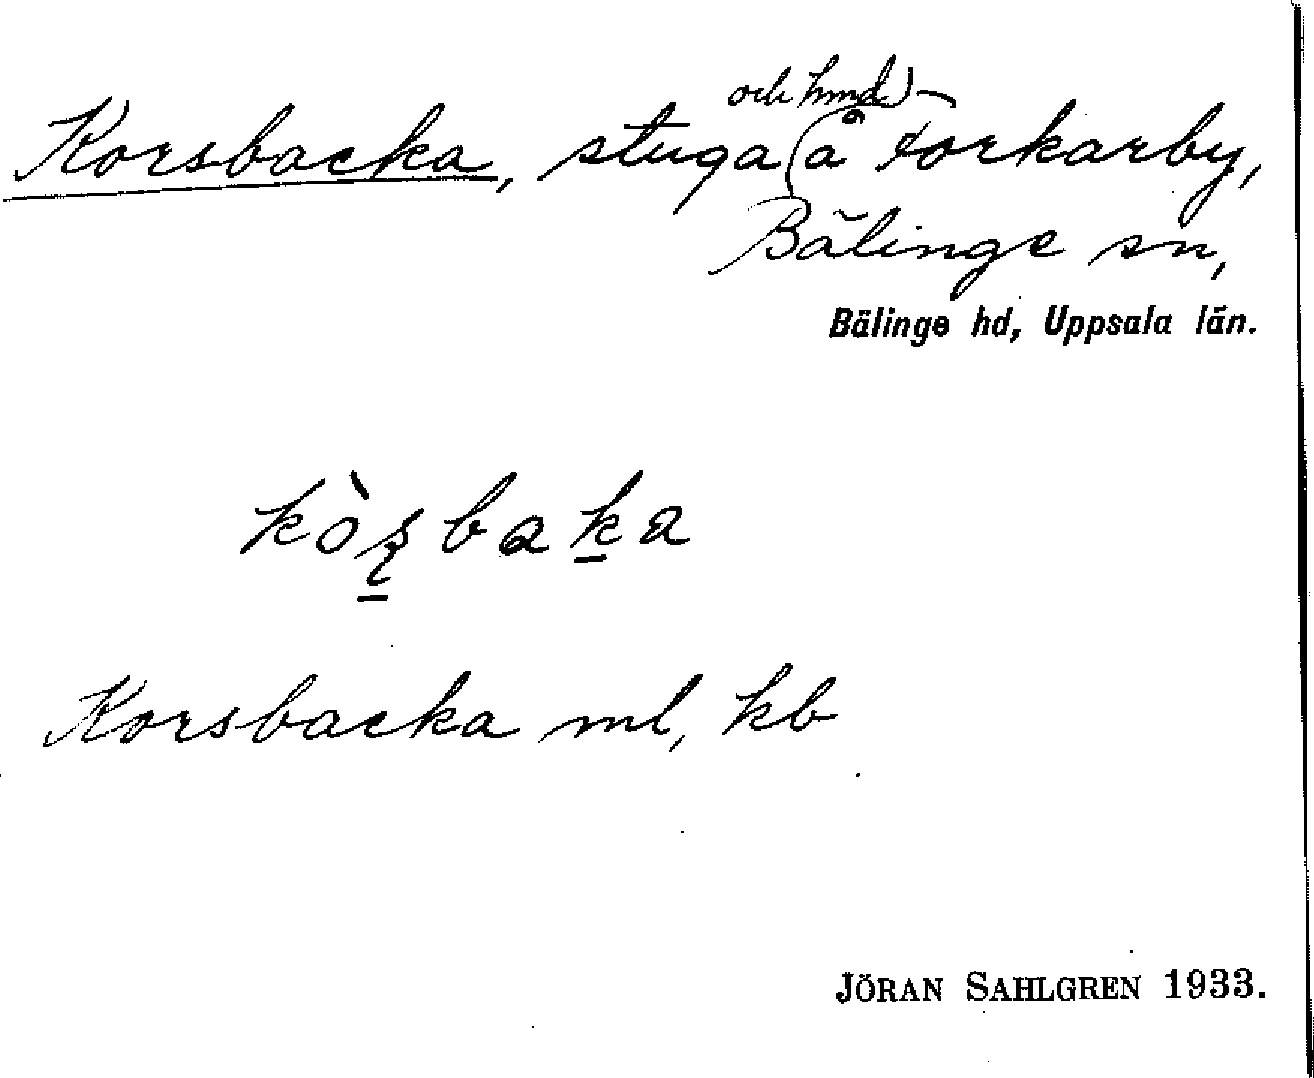 och hmd
Korsbacka, stuga å Torkarby,
Bälinge sn,
Bälinge hd, Uppsala län.
kòʂbaka
Korsbacka ml, kb
JÖRAN SAHLGREN 1933.